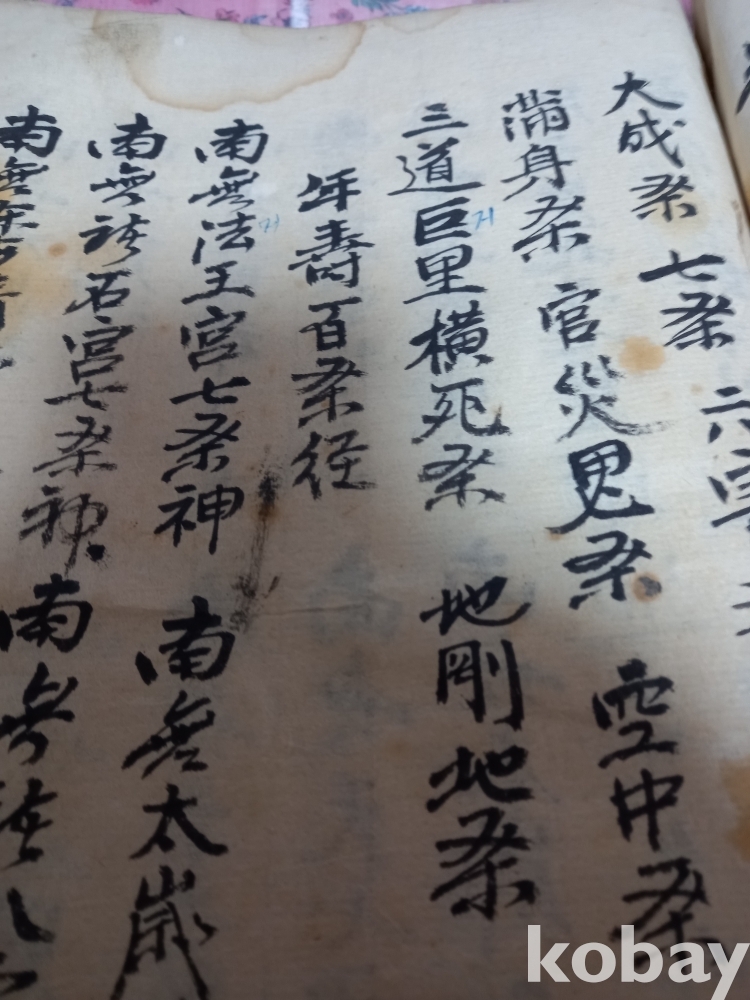 大成杀 七杀 六
滿身杀 官災鬼杀 空中杀
三道巨里橫死杀 地剛地杀
年壽百杀径
南無法王宮七杀神 南無太歲
南無 石宮七杀神 南無法
南無
kobay